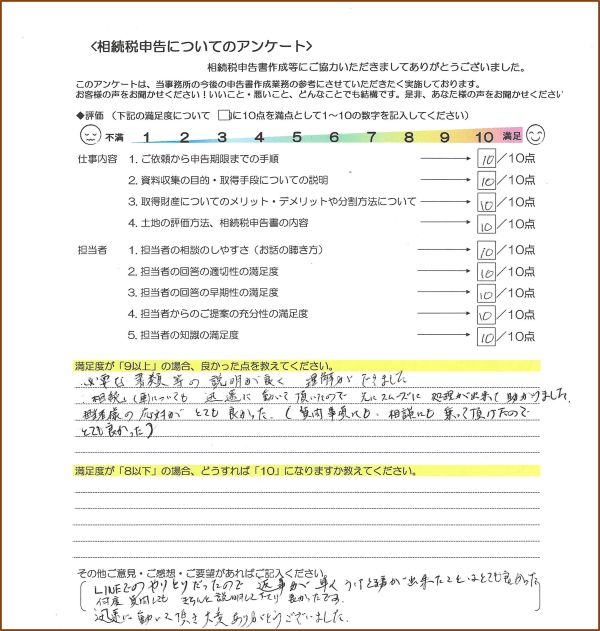 <相続税申告についてのアンケート>
相続税申告書作成等にご協力いただきましてありがとうございました。
このアンケートは、当事務所の今後の申告書作成業務の参考にさせていただきたく実施しております。
お客様の声をお聞かせください!いいこと・悪いこと、どんなことでも結構です。是非、あなた様の声をお聞かせください
◆評価 (下記の満足度について □に10点を満点として1~10の数字を記入してください)
不満 1 2 3 4 5 6 7 8 9 10 満足
仕事内容 1. ご依頼から申告期限までの手順 10/10点
2. 資料収集の目的・取得手段についての説明 10/10点
3. 取得財産についてのメリット・デメリットや分割方法について 10/10点
4. 土地の評価方法、相続税申告書の内容 10/10点
担当者 1. 担当者の相談のしやすさ(お話の聴き方) 10/10点
2. 担当者の回答の適切性の満足度 10/10点
3. 担当者の回答の早期性の満足度 10/10点
4. 担当者からのご提案の充分性の満足度 10/10点
5. 担当者の知識の満足度 10/10点
満足度が「9以上」の場合、良かった点を教えてください。
必要な書類等の説明が良く 理解ができました
相続についても 迅速に動いて頂いたので スムーズに 処理が出来て助かりました
担当者様の応対がとても良かった。(質問事項にも、相談にも乗って頂けたので
とても良かった)
満足度が「8以下」の場合、どうすれば「10」になりますか教えてください。
その他ご意見・ご感想・ご要望があればご記入ください。
LINEでのやりとりだったので 返事が早く うけとる事が出来たことはとても良かった
何度質問しても きちんと説明して下さり 良かったです。
迅速に動いて頂き大変ありがとうございました。